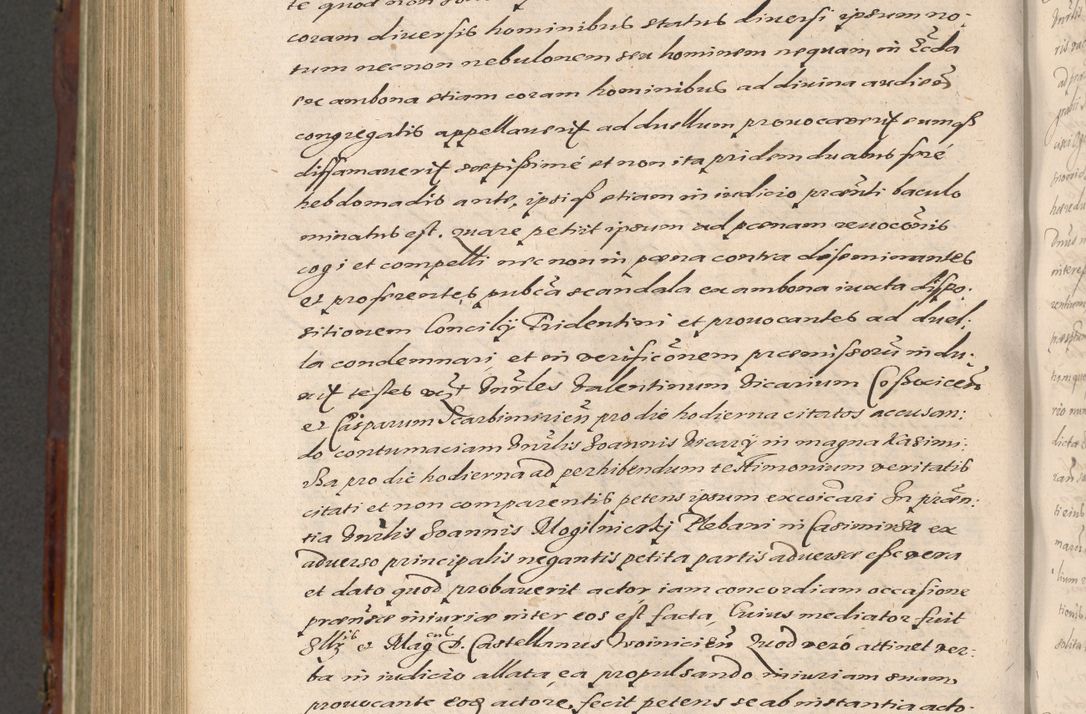 te quod non
coram diuersis hominibus status diuersi ipsum no:
tum necnon nebulonem seu hominem nequam in Eccła
ex ambona etiam coram hominibus ad diuina audień
congregatis appellauerit ad duellum prouocauerit eumqß
diffamauerit sæpißimé et non ita pridem duabus feré
hebdomadis ante, ipsiqß etiam in iudicio præńti baculo
minatus est. quare petiit ipsum ad pænam reuocõnis
cogi et compelli necnon in pæna contra diseminantes
et proferentes pubca scandala ex ambona iuxta dispo:
sitionem Concilÿ Tridentini et prouocantes ad duel:
la condemnari, et in verificõnem præmissorũ indu:
xit testes Valentinum Vicarium
et Casparum Skarbimirień pro die hodierna citatos accusan:
do contumaciam Joannis Vicarÿ in magna Kazimi:
rza pro die hodierna ad perhibendum testimonium veritatis
citati et non comparentis petens ipsum excoicari In præń:
tia Joannis Mogilniczkj Plebani in Casimirza ex
aduerso principalis negantis petita partis aduersæ eße vera
et dato quod probauerit actor iam concordiam occasione
præńsæ iniuriæ inter eos est facta, Cuius mediator fuit
Illris et Magcus D. Castellanus Woinicień Quod veró attinet ver:
ba in iudicio allata, ea propulsando iniuriam suam,
prouocante eos actore, fecit petens se ab instantia acto: